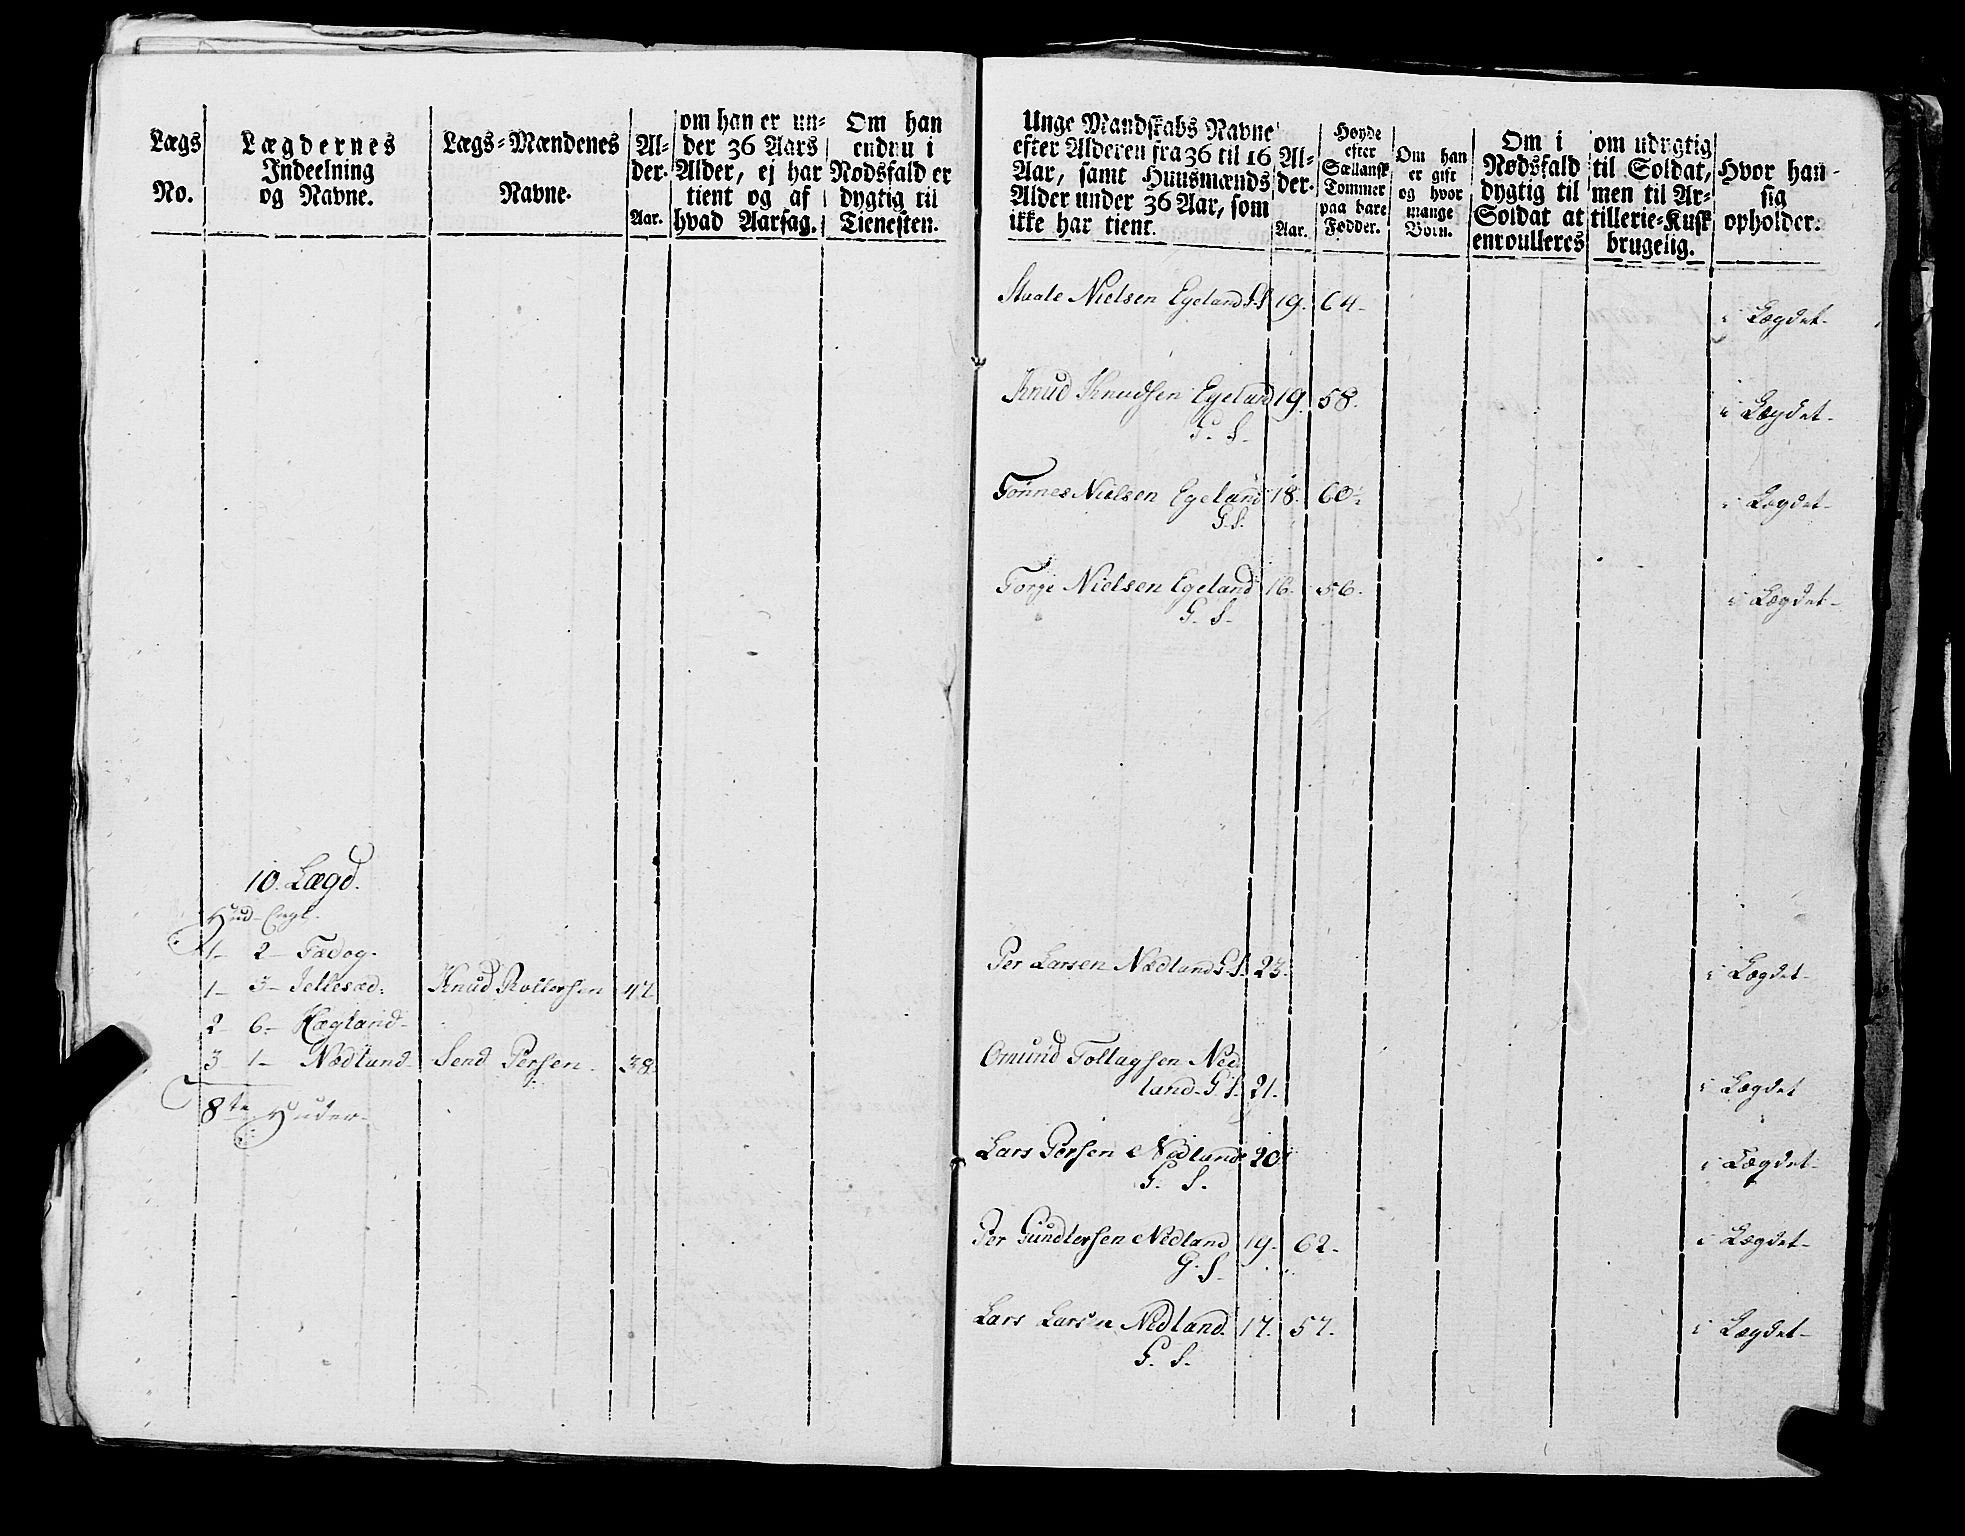 Lægs
No.
Lægdernes
Indeelning
og Navne.
Lægs-Mændenes
Navne.
Al-
der.
Aar.
om han er un-
der 36 Aars
Alder, ej har
tient og af
hvad Aarsag.
Om han
endnu i
Nødsfald er
dygtig til
Tienesten.
10. Lægd.
Hud - Engl.
1 - 2 - Fædog.
1 - 3 - Jellesæd. Knud Rollersen 47
2 - 6 - Hægland -
3 - 1 - Nædland. Send Persen. 38
8te Huder -
Unge Mandskabs Navne
efter Alderen fra 36 til 16
Aar, samt Huusmænds
Alder under 36 Aar, som
ikke har tient.
Al-
der.
Aar.
Høyde
efter
Sællansk
Tommer
paa bare
Fødder.
Om han
er gift
og hvor
mange
Børn.
Om i
Nødsfald
dygtig til
Soldat at
enroulleres
om udygtig
til Soldat,
men til Ar-
tillerie-Kusk
brugelig.
Hvor han
sig
opholder.
Staale Nielsen Egeland G. S. 19. 64. i Lægdet -
Knud Knudsen Egeland 19. 58. i Lægdet -
G. S.
Tönnes Nielsen Egeland 18. 60. i Lægdet -
G. S.
Torje Nielsen Egeland 16. 56. i Lægdet -
G. S.
Per Larsen Nædland G. S. 23. i Lægdet -
Omund Tollagsen Ned-
land. G. S. 21. i Lægdet
Lars Persen Nedland 20 i Lægdet -
G. S.
Per Gundlersen Nedland 19. 62. i Lægdet -
G. S.
Lars Larsen Nedland. 17. 57. i Lægdet -
G. S.